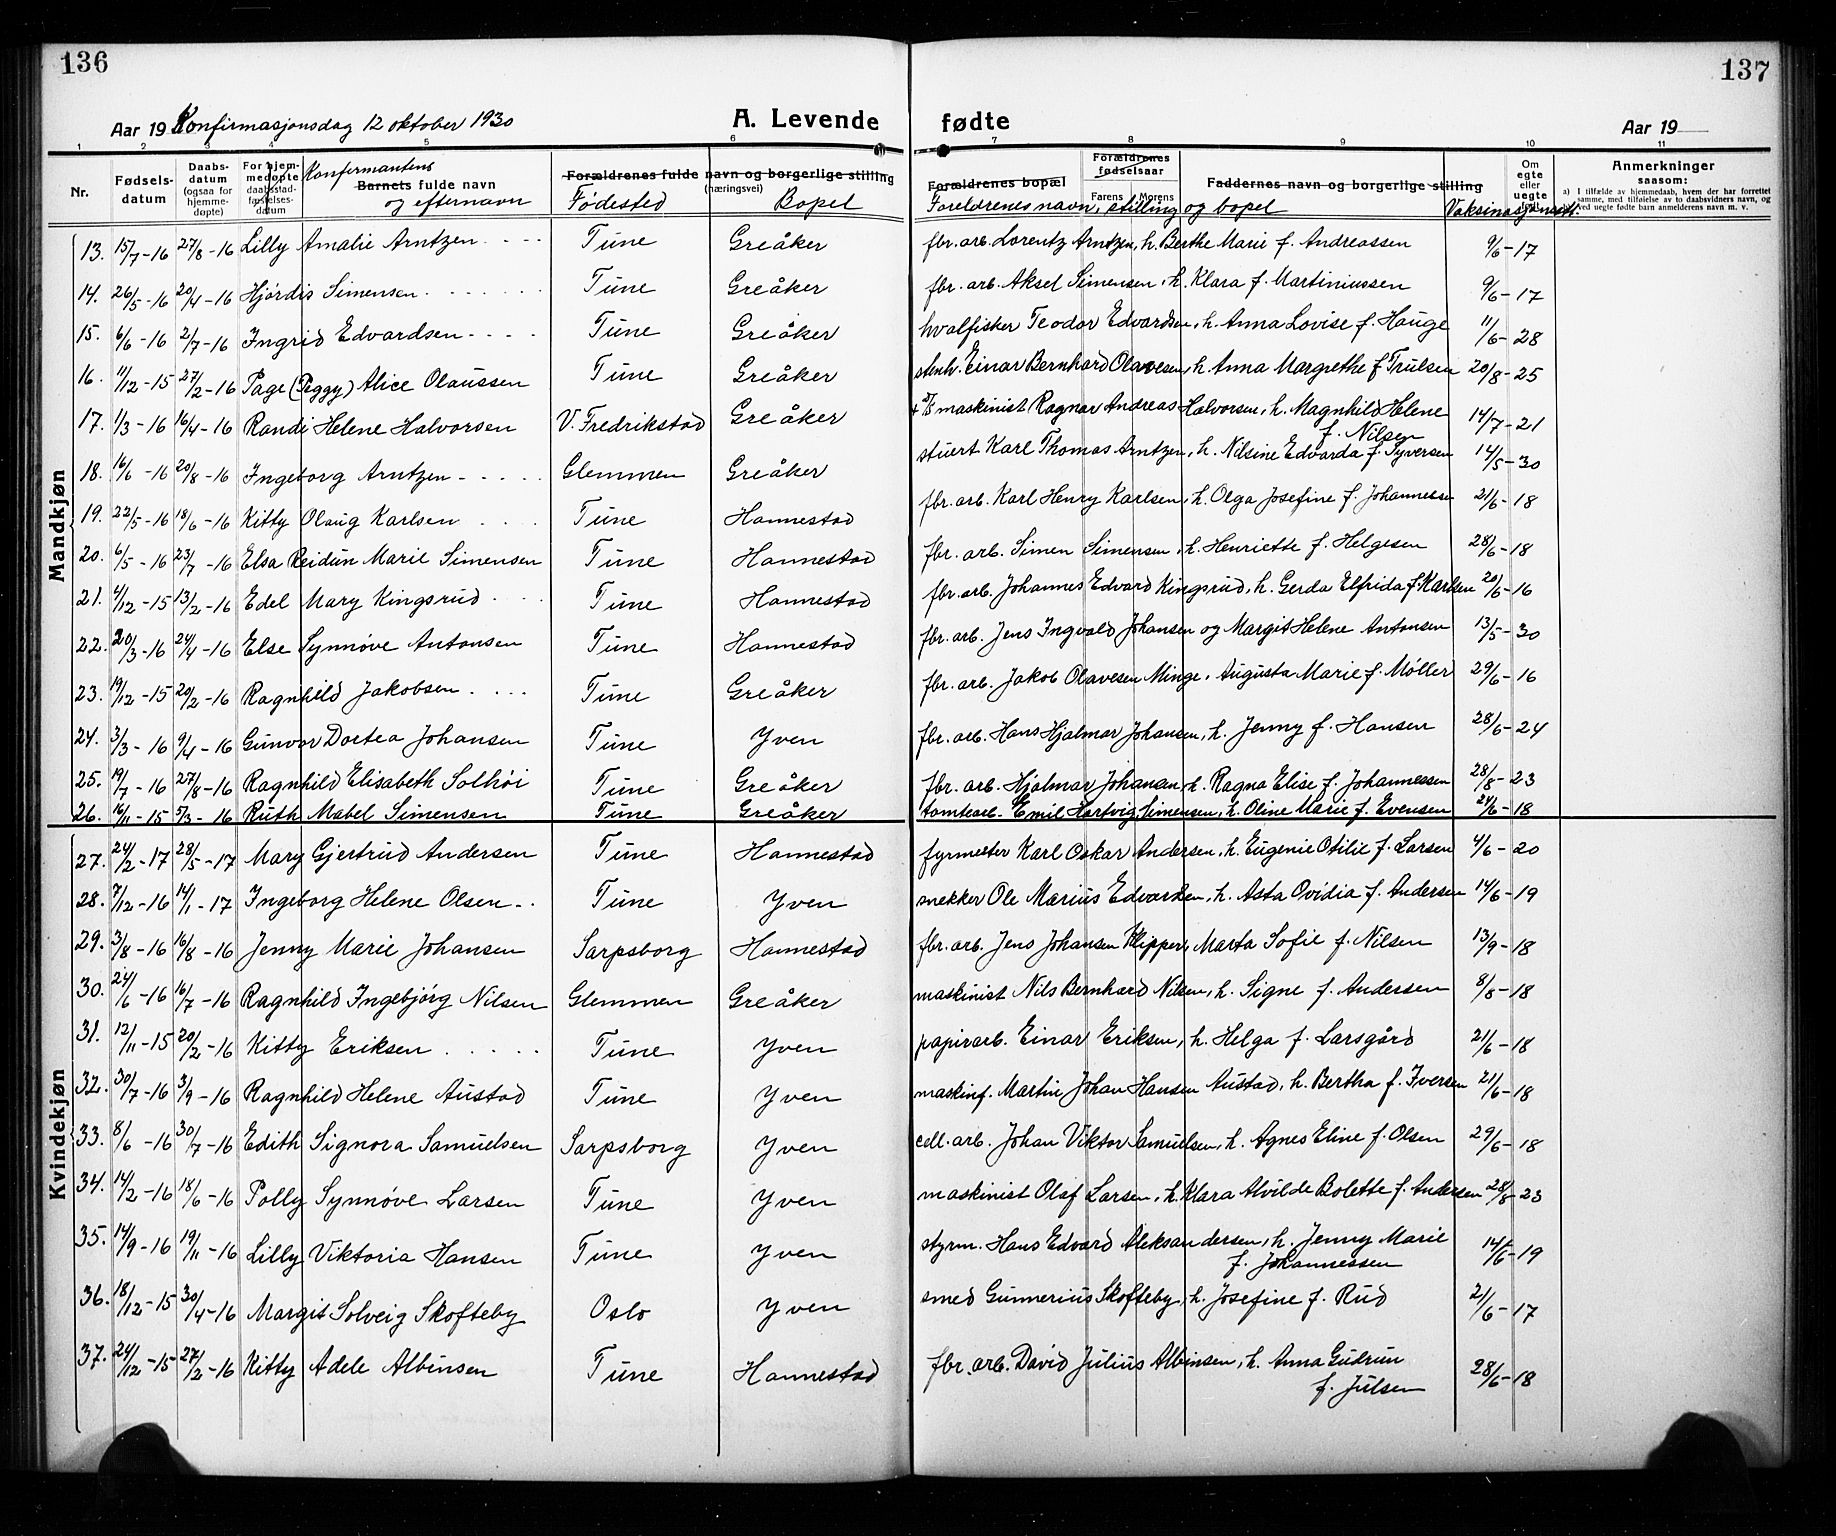 136
137
Aar 19 Konfirmasjonsdag 12 oktober 1930 A. Levende fødte Aar 19
1 2 3 4 5 6 7 8 9 10 11
Nr. Fødsels-datum Daabs-datum (ogsaa for hjemme-døpte) For hjem-medøpte daabsstad-fæstelses-datum Konfirmantens Barnets fulde navn og efternavn Forældrenes fulde navn og borgerlige stilling (næringsvei) Fødested Bopel Forældrenes bopæl Forældrenes fødselsaar Farens Morens Faddernes navn og borgerlige stilling Foreldrenes navn, stilling og bopel Om egte eller uegte født Vaksinasjonsatt. Anmerkninger saasom: a) I tilfælde av hjemmedaab, hvem der har forrettet samme, med tilføielse av to daabsvidners navn, og b) ved uegte fødte barn anmelderens navn m. v.
Mandkjøn
13. 15/7-16 27/8-16 Lilly Amalie Arntzen Tune Greåker fbr. arb. Lorentz Arntzen, h. Berthe Marie f. Andreassen 9/6-17
14. 26/5-16 20/4-16 Hjórdis Simensen Tune Greåker fbr. arb. Aksel Simensen, h. Klara f. Martiniussen 9/6-17
15. 6/6-16 2/7-16 Ingrid Edvardsen Tune Greåker hvalfisker Teodor Edvardsen, h. Anna Lovise f. Hauge 11/6-28
16. 11/12-15 27/2-16 Page (Peggy) Alice Olaussen Tune Greåker stenh. Einar Bernhard Olavesen, h. Anna Margrethe f. Trulsen 20/8-25
17. 1/3-16 16/4-16 Randi Helene Halvorsen V. Fredrikstad Greåker maskinist Ragnar Andreas Halvorsen, h. Magnhild Helene f. Nilsen 14/7-21
18. 16/6-16 20/8-16 Ingeborg Arntzen Glemmen Greåker stuert Karl Thomas Arntzen, h. Nilsine Edvarda f. Syversen 14/5-30
19. 22/5-16 18/6-16 Kitty Olaug Karlsen Tune Hannestad fbr. arb. Karl Henry Karlsen, h. Olga Josefine f. Johannesse 21/6-18
20. 6/5-16 23/7-16 Elsa Reidun Marie Simensen Tune Hannestad fbr. arb. Simen Simensen, h. Henriette f. Helgesen 28/6-18
21. 4/12-15 13/2-16 Edel Mary Kingsrud Tune Hannestad fbr. arb. Johannes Edvard Kingsrud, h. Gerda Elfrida f. Karlsen 20/6-16
22. 20/3-16 24/4-16 Else Synnøve Antonsen Tune Hannestad fbr. arb. Jens Ingvald Johansen og Margit Helene Antonsen 13/5-30
23. 19/12-15 20/2-16 Ragnhild Jakobsen Tune Greåker fbr. arb. Jakob Olavesen Minge, Augusta Marie f. Møller 29/6-16
24. 3/3-16 9/4-16 Gunvor Dortea Johansen Tune Yven fbr. arb. Hans Hjalmar Johansen, h. Jenny f. Hansen 28/6-24
25. 19/7-16 27/8-16 Ragnhild Elisabeth Solhói Tune Greåker fbr. arb. Hjalmar Johansen, h. Ragna Elise f. Johannessen 28/8-23
26. 16/11-15 5/3-16 Ruth Mabel Simensen Tune Greåker tomtearb. Emil Hartvig Simensen, h. Oline Marie f. Evensen 24/6-18
Kvindekjøn
27. 24/2-17 28/5-17 Mary Gjertrud Andersen Tune Hannestad fyrmester Karl Oskar Andersen, h. Eugenie Otilie f. Larsen 4/6-20
28. 7/12-16 14/1-17 Ingeborg Helene Olsen Tune Yven snekker Ole Marius Edvardsen, h. Asta Ovidia f. Andersen 14/6-19
29. 3/8-16 16/8-16 Jenny Marie Johansen Sarpsborg Hannestad fbr. arb. Jens Johansen Klipper, Marta Sofie f. Nilsen 13/9-18
30. 24/6-16 16/7-16 Ragnhild Ingebjórg Nilsen Glemmen Greåker maskinist Nils Bernhard Nilsen, h. Signe f. Andersen 8/8-18
31. 12/11-15 20/2-16 Kitty Eriksen Tune Yven papirarb. Einar Eriksen, h. Helga f. Larsgård 21/6-18
32. 30/7-16 3/9-16 Ragnhild Helene Austad Tune Yven maskinf. Martin Johan Hansen Austad, h. Bertha f. Iversen 21/6-18
33. 8/6-16 30/7-16 Edith Signora Samuelsen Sarpsborg Yven cell. arb. Johan Viktor Samuelsen, h. Agnes Eline f. Olsen 29/6-18
34. 14/2-16 18/6-16 Polly Synnøve Larsen Tune Yven maskinist Olaf Larsen, h. Klara Alvilde Bolette f. Andersen 28/8-23
35. 14/9-16 19/11-16 Lilly Viktoria Hansen Tune Yven styrm. Hans Edvard Aleksandersen, h. Jenny Marie f. Johannessen 14/6-19
36. 18/12-15 30/4-16 Margit Solveig Skofteby Oslo Yven smed Gunnerius Skofteby, h. Josefine f. Rud 21/6-17
37. 24/12-15 27/2-16 Kitty Adele Albinsen Tune Hannestad fbr. arb. David Julius Albinsen, h. Anna Gudrun f. Julsen 28/6-18